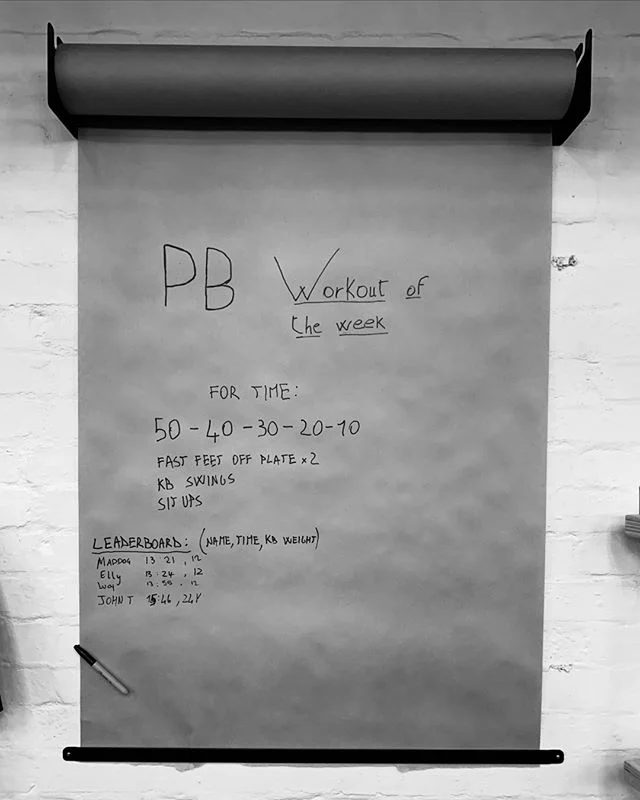 PB Workout of
the week
FOR TIME:
50 - 40 - 30 - 20 - 10
FAST FEET OFF PLATE x 2
KB SWINGS
SIT UPS
LEADERBOARD: (NAME, TIME, KB WEIGHT)
MADDOG 13 21 , 12
Elly 13:24 , 12
13:55 , 12
JOHN T 15:46 , 24